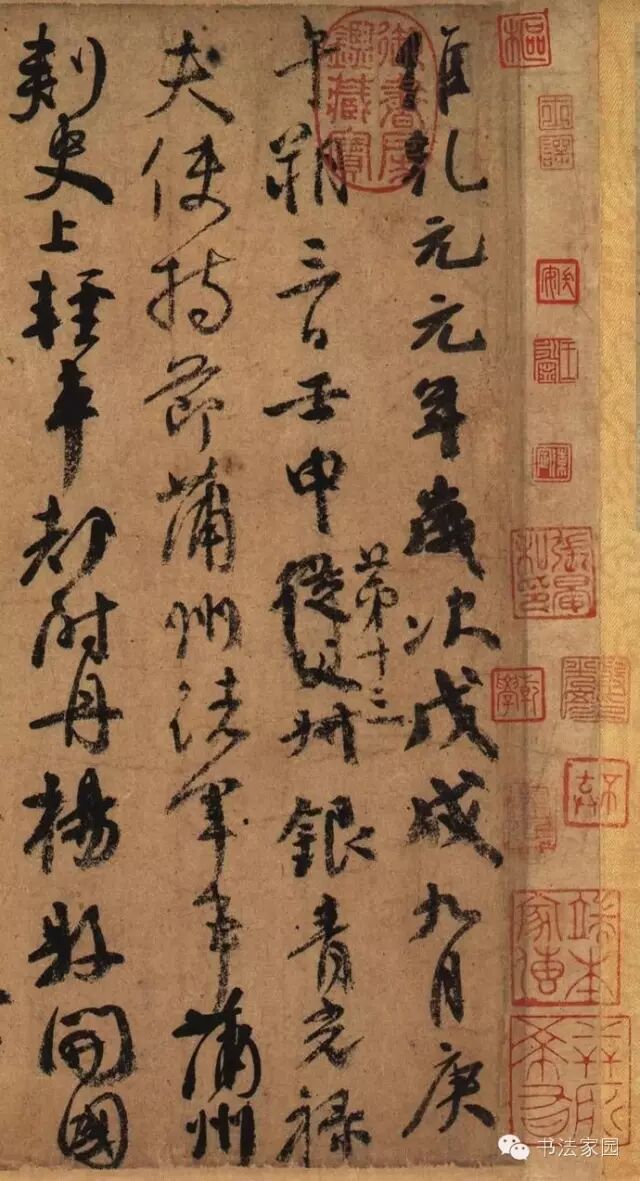 維乾元元年歲次戊戌九月庚
午朔三日壬申第十三從父叔銀青光祿
夫使持節蒲州諸軍事蒲州
刺史上輕車都尉丹楊縣開國
御書房鑑藏寶
樞
張晏私印
端本家傳
书法家园